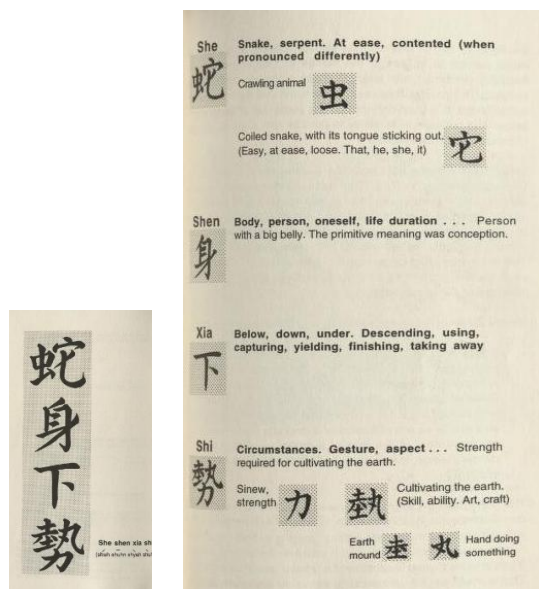 蛇
身
下
勢
She shen xia sh
She
蛇
Snake, serpent. At ease, contented (when
pronounced differently)
Crawling animal
虫
Coiled snake, with its tongue sticking out.
(Easy, at ease, loose. That, he, she, it)
它
Shen
身
Body, person, oneself, life duration . . . Person
with a big belly. The primitive meaning was conception.
Xia
下
Below, down, under. Descending, using,
capturing, yielding, finishing, taking away
Shi
勢
Circumstances. Gesture, aspect . . . Strength
required for cultivating the earth.
Sinew,
strength
力
埶
Cultivating the earth.
(Skill, ability. Art, craft)
Earth
mound
坴
丸
Hand doing
something